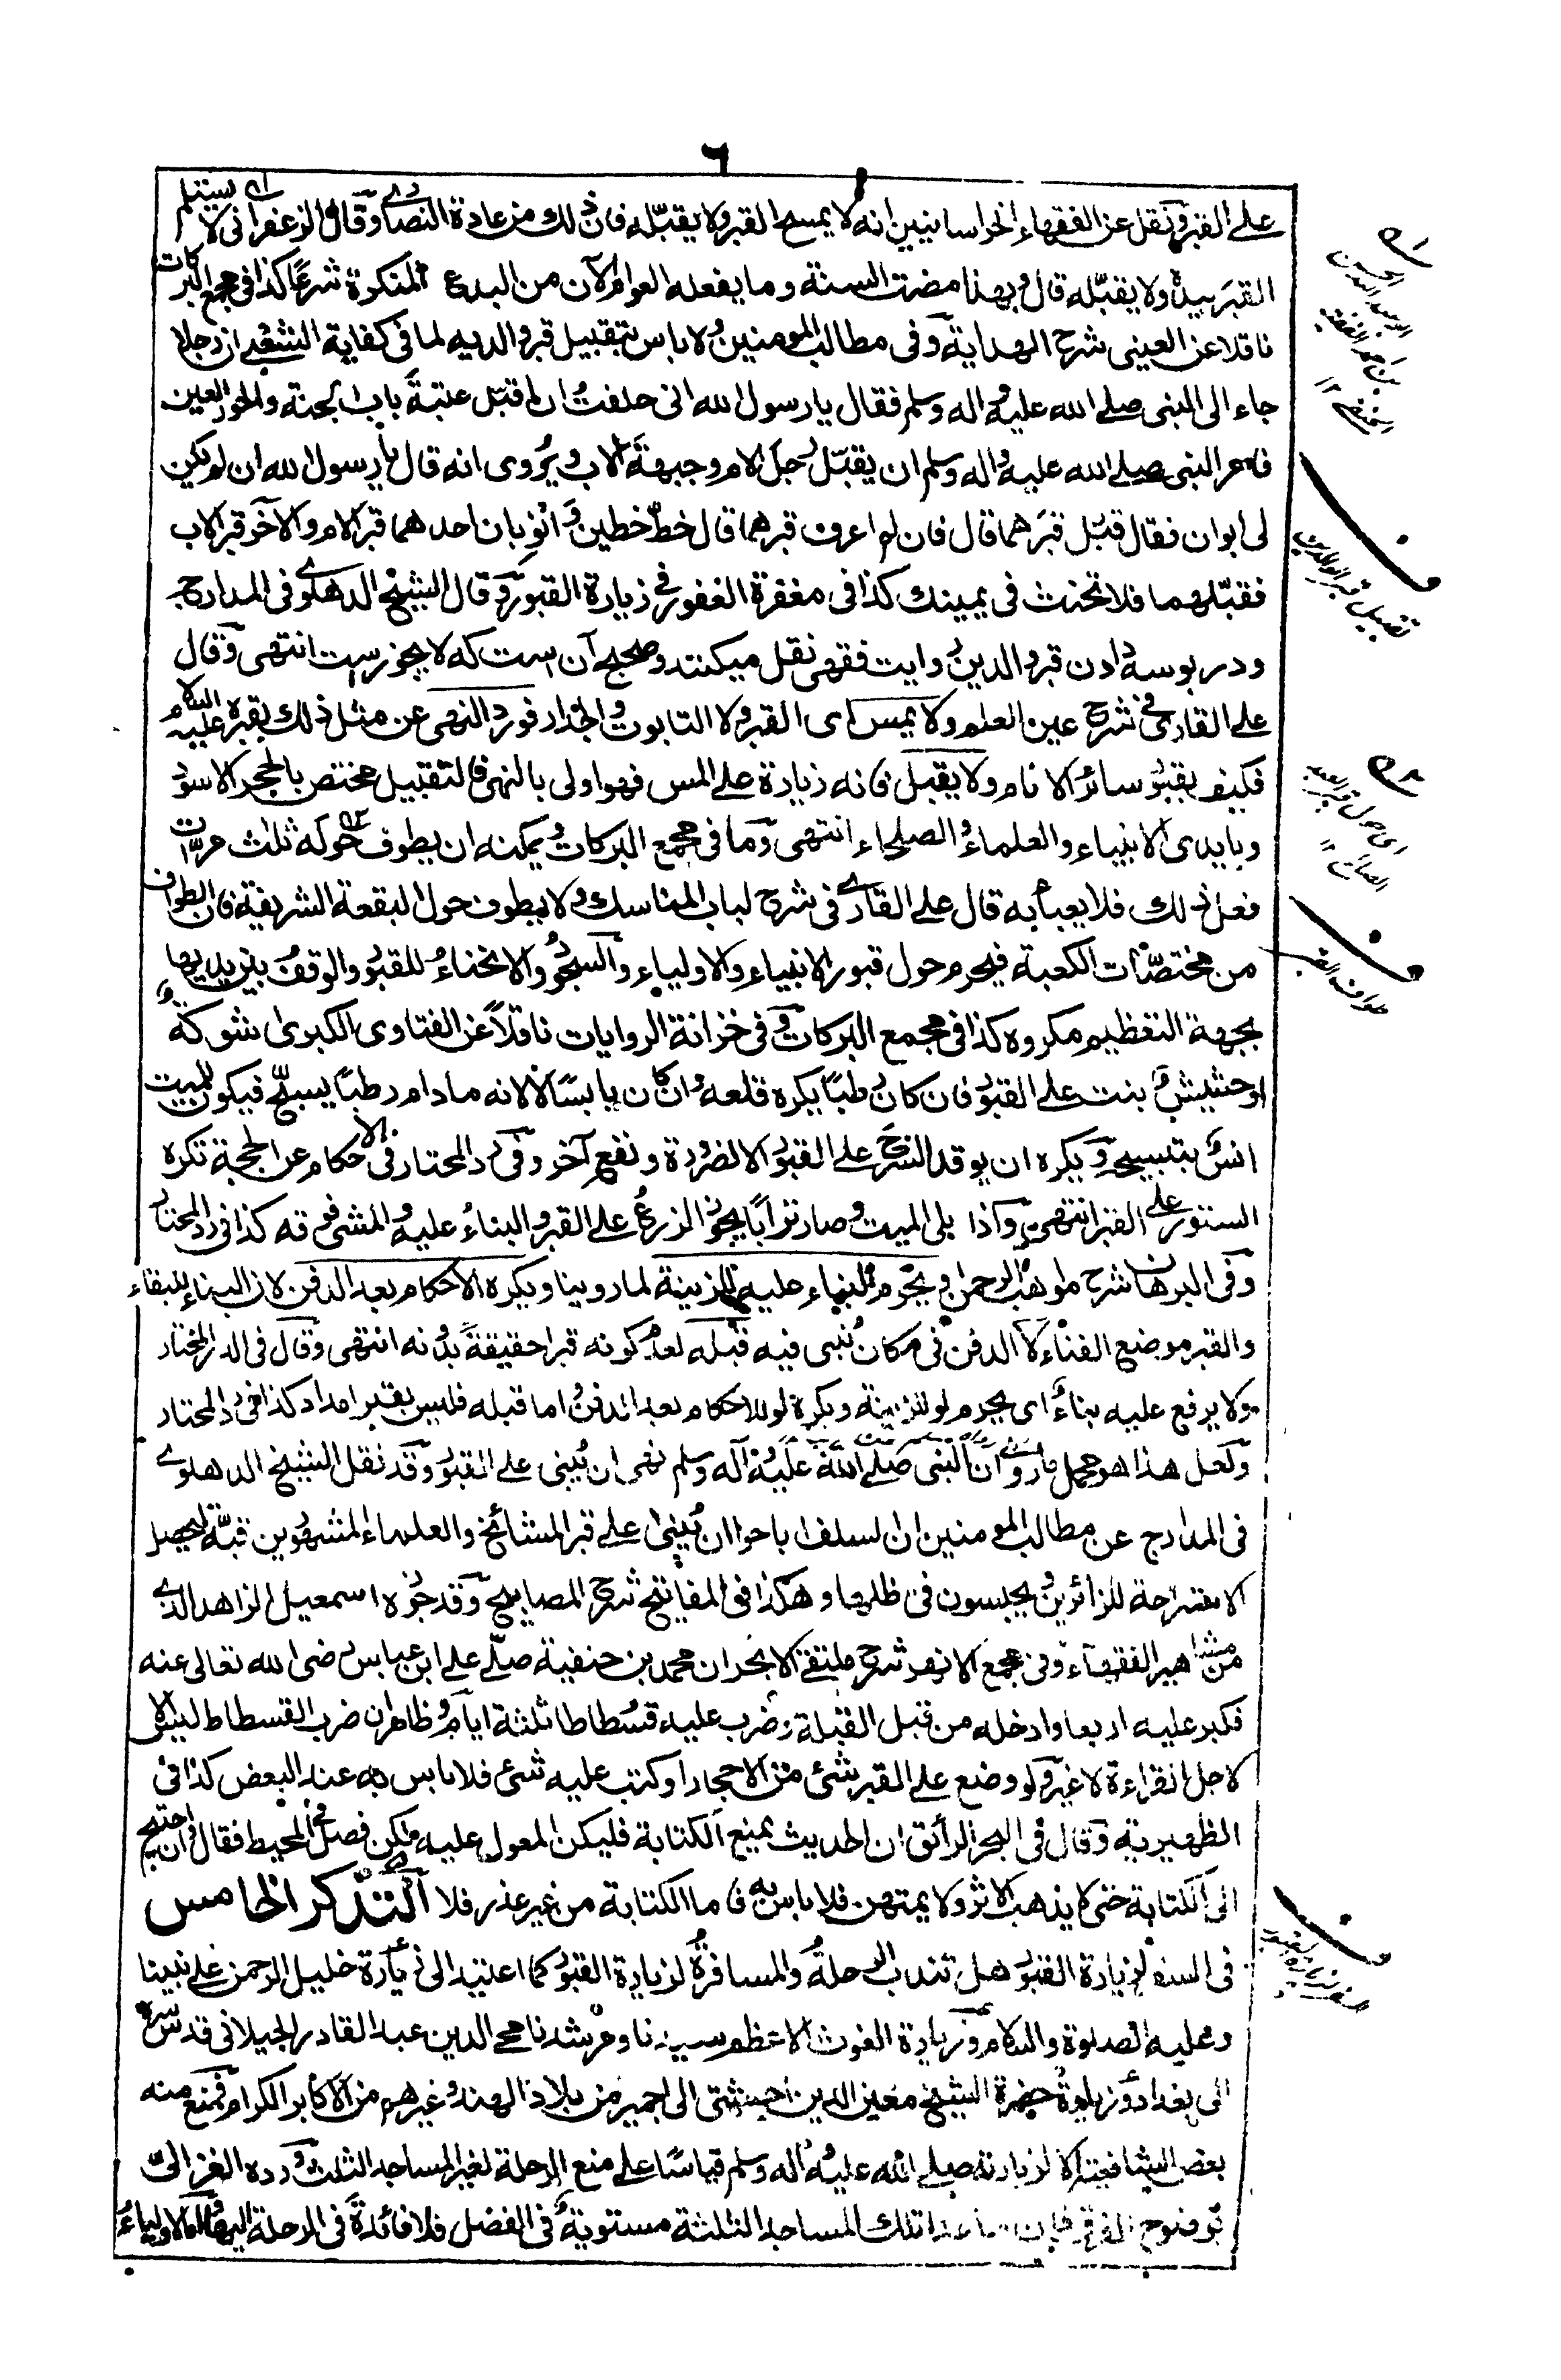 ٦
على القبر ونقل عن الفقهاء الخراسانيين انه لا يمسح القبر ولا يقبّله فان ذلك من عادة النصارى وقال الزعفرانى لا يستلم
القبر بيده ولا يقبّله قال وبهذا مضت السنة وما يفعله العوام الآن من البدع المنكرة شرعًا كذا فى مجمع البركات
ناقلا عن العينى شرح الهداية وفى مطالب المومنين ولا باس بتقبيل قبر والديه لما فى كفاية الشعبى ان رجلا
جاء الى النبى صلے الله عليه واله وسلم فقال يا رسول الله انى حلفت ان اقبّل عتبة باب الجنة والحور العين
فامر النبى صلے الله عليه واله وسلم ان يقبّل رجل الام وجبهة الاب ويروى انه قال يا رسول الله ان لم يكن
لى ابوان فقال قبّل قبرهما قال فان لم اعرف قبرهما قال خطّ خطين وانو بان احدهما قبر الام والآخر قبر الاب
فقبّلهما فلا تحنث فى يمينك كذا فى مغفرة الغفور فى زيارة القبور وقال الشيخ الدهلوى فى المدارج
ودر بوسه دادن قبر والدين روايت فقهى نقل ميكنند وصحيح آن است كه لا يجوز ست انتهى وقال
على القارى فى شرح عين العلم ولا يمس اى القبر ولا التابوت والجدار فورد النهى عن مثل ذلك بقبره عليه السلام
فكيف بقبور سائر الانام ولا يقبل فانه زيادة على المس فهو اولى بالنهى فالتقبيل مختص بالحجر الاسود
وبايدى الانبياء والعلماء والصلحاء انتهى وما فى مجمع البركات ويمكنه ان يطوف حوله ثلث مرات
فعل ذلك فلا يعبأ به قال على القارى فى شرح لباب المناسك ولا يطوف حول البقعة الشريفة فان الطواف
من مختصّات الكعبة فيحرم حول قبور الانبياء والاولياء والسجود والانحناء للقبور والوقف بين يديها
بجهة التعظيم مكروه كذا فى مجمع البركات وفى خزانة الروايات ناقلاً عن الفتاوى الكبرى شوكة
او حشيش نبت على القبور فان كان رطبًا يكره قلعه وان كان يابسًا لا لانه ما دام رطبًا يسبّح فيكون للميت
انس بتسبيحه ويكره ان يوقد السرج على القبور الا لضرورة ونفع آخر وفى رد المحتار فى الاحكام عن الحجة تكره
الستور على القبر انتهى واذا بلى الميت وصار ترابًا يجوز الزرع على القبر والبناء عليه والمشى فوقه كذا فى رد المحتار
وفى البرهان شرح مواهب الرحمن يحرم البناء عليه للزينة لما روينا ويكره الاحكام بعد الدفن لان البناء للبقاء
والقبر موضع الفناء لا الدفن فى مكان بنى فيه قبله لعدم كونه قبرا حقيقة بدونه انتهى وقال فى الدر المختار
ولا يرفع عليه بناء اى يحرم لو للزينة ويكره لو للاحكام بعد الدفن واما قبله فليس بقبر امداد كذا فى رد المحتار
ولعل هذا هو محمل ما روى ان النبى صلے الله عليه وآله وسلم نهى ان يبنى على القبور وقد نقل الشيخ الدهلوى
فى المدارج عن مطالب المومنين ان السلف اباحوا ان يبنى على قبر المشائخ والعلماء المشهورين قبّة ليحصل
الاستراحة للزائرين ويجلسون فى ظلها وهكذا فى المفاتيح شرح المصابيح وقد جوّزه اسمعيل الزاهد الذى
من مشاهير الفقهاء وفى مجمع الانهر شرح ملتقى الابحر ان محمد بن حنفية صلّى على ابن عباس رضى الله تعالى عنه
فكبر عليه اربعا وادخله من قبل القبلة وضرب عليه فسطاطا ثلثة ايام وظاهر ان ضرب الفسطاط ليس الا
لاجل القراءة لا غير ولو وضع على القبر شئ من الاحجار او كتب عليه شئ فلا باس به عند البعض كذا فى
الظهيرية وقال فى البحر الرائق ان الحديث يمنع الكتابة فليكن المعول عليه ولكن فصل فى المحيط فقال ان احتيج
الى الكتابة حتى لا يذهب الاثر ولا يمتهن فلا باس به فاما الكتابة من غير عذر فلا التذكر الخامس
فى السفر لزيارة القبور هل تندب الرحلة والمسافرة لزيارة القبور كما اعتيد الى زيارة خليل الرحمن على نبينا
وعليه الصلوة والسلام وزيارة الغوث الاعظم سيدنا ومرشدنا محى الدين عبد القادر الجيلانى قدس سره
الى بغداد وزيارة حضرة الشيخ معين الدين الچشتى الى اجمير من بلاد الهند وغيرهم من الاكابر الكرام فمنع منه
بعض الشافعية الا لزيارته صلے الله عليه واله وسلم قياسًا على منع الرحلة لغير المساجد الثلث ورده الغزالى
بوضوح الفرق فان ما عدا تلك المساجد الثلثة مستوية فى الفضل فلا فائدة فى الرحلة اليها واما الاولياء
تقبيل قبر الوالدين
اى حول قبر العبد الصالح ١٢
طواف القبر
السفر لزيارة القبور